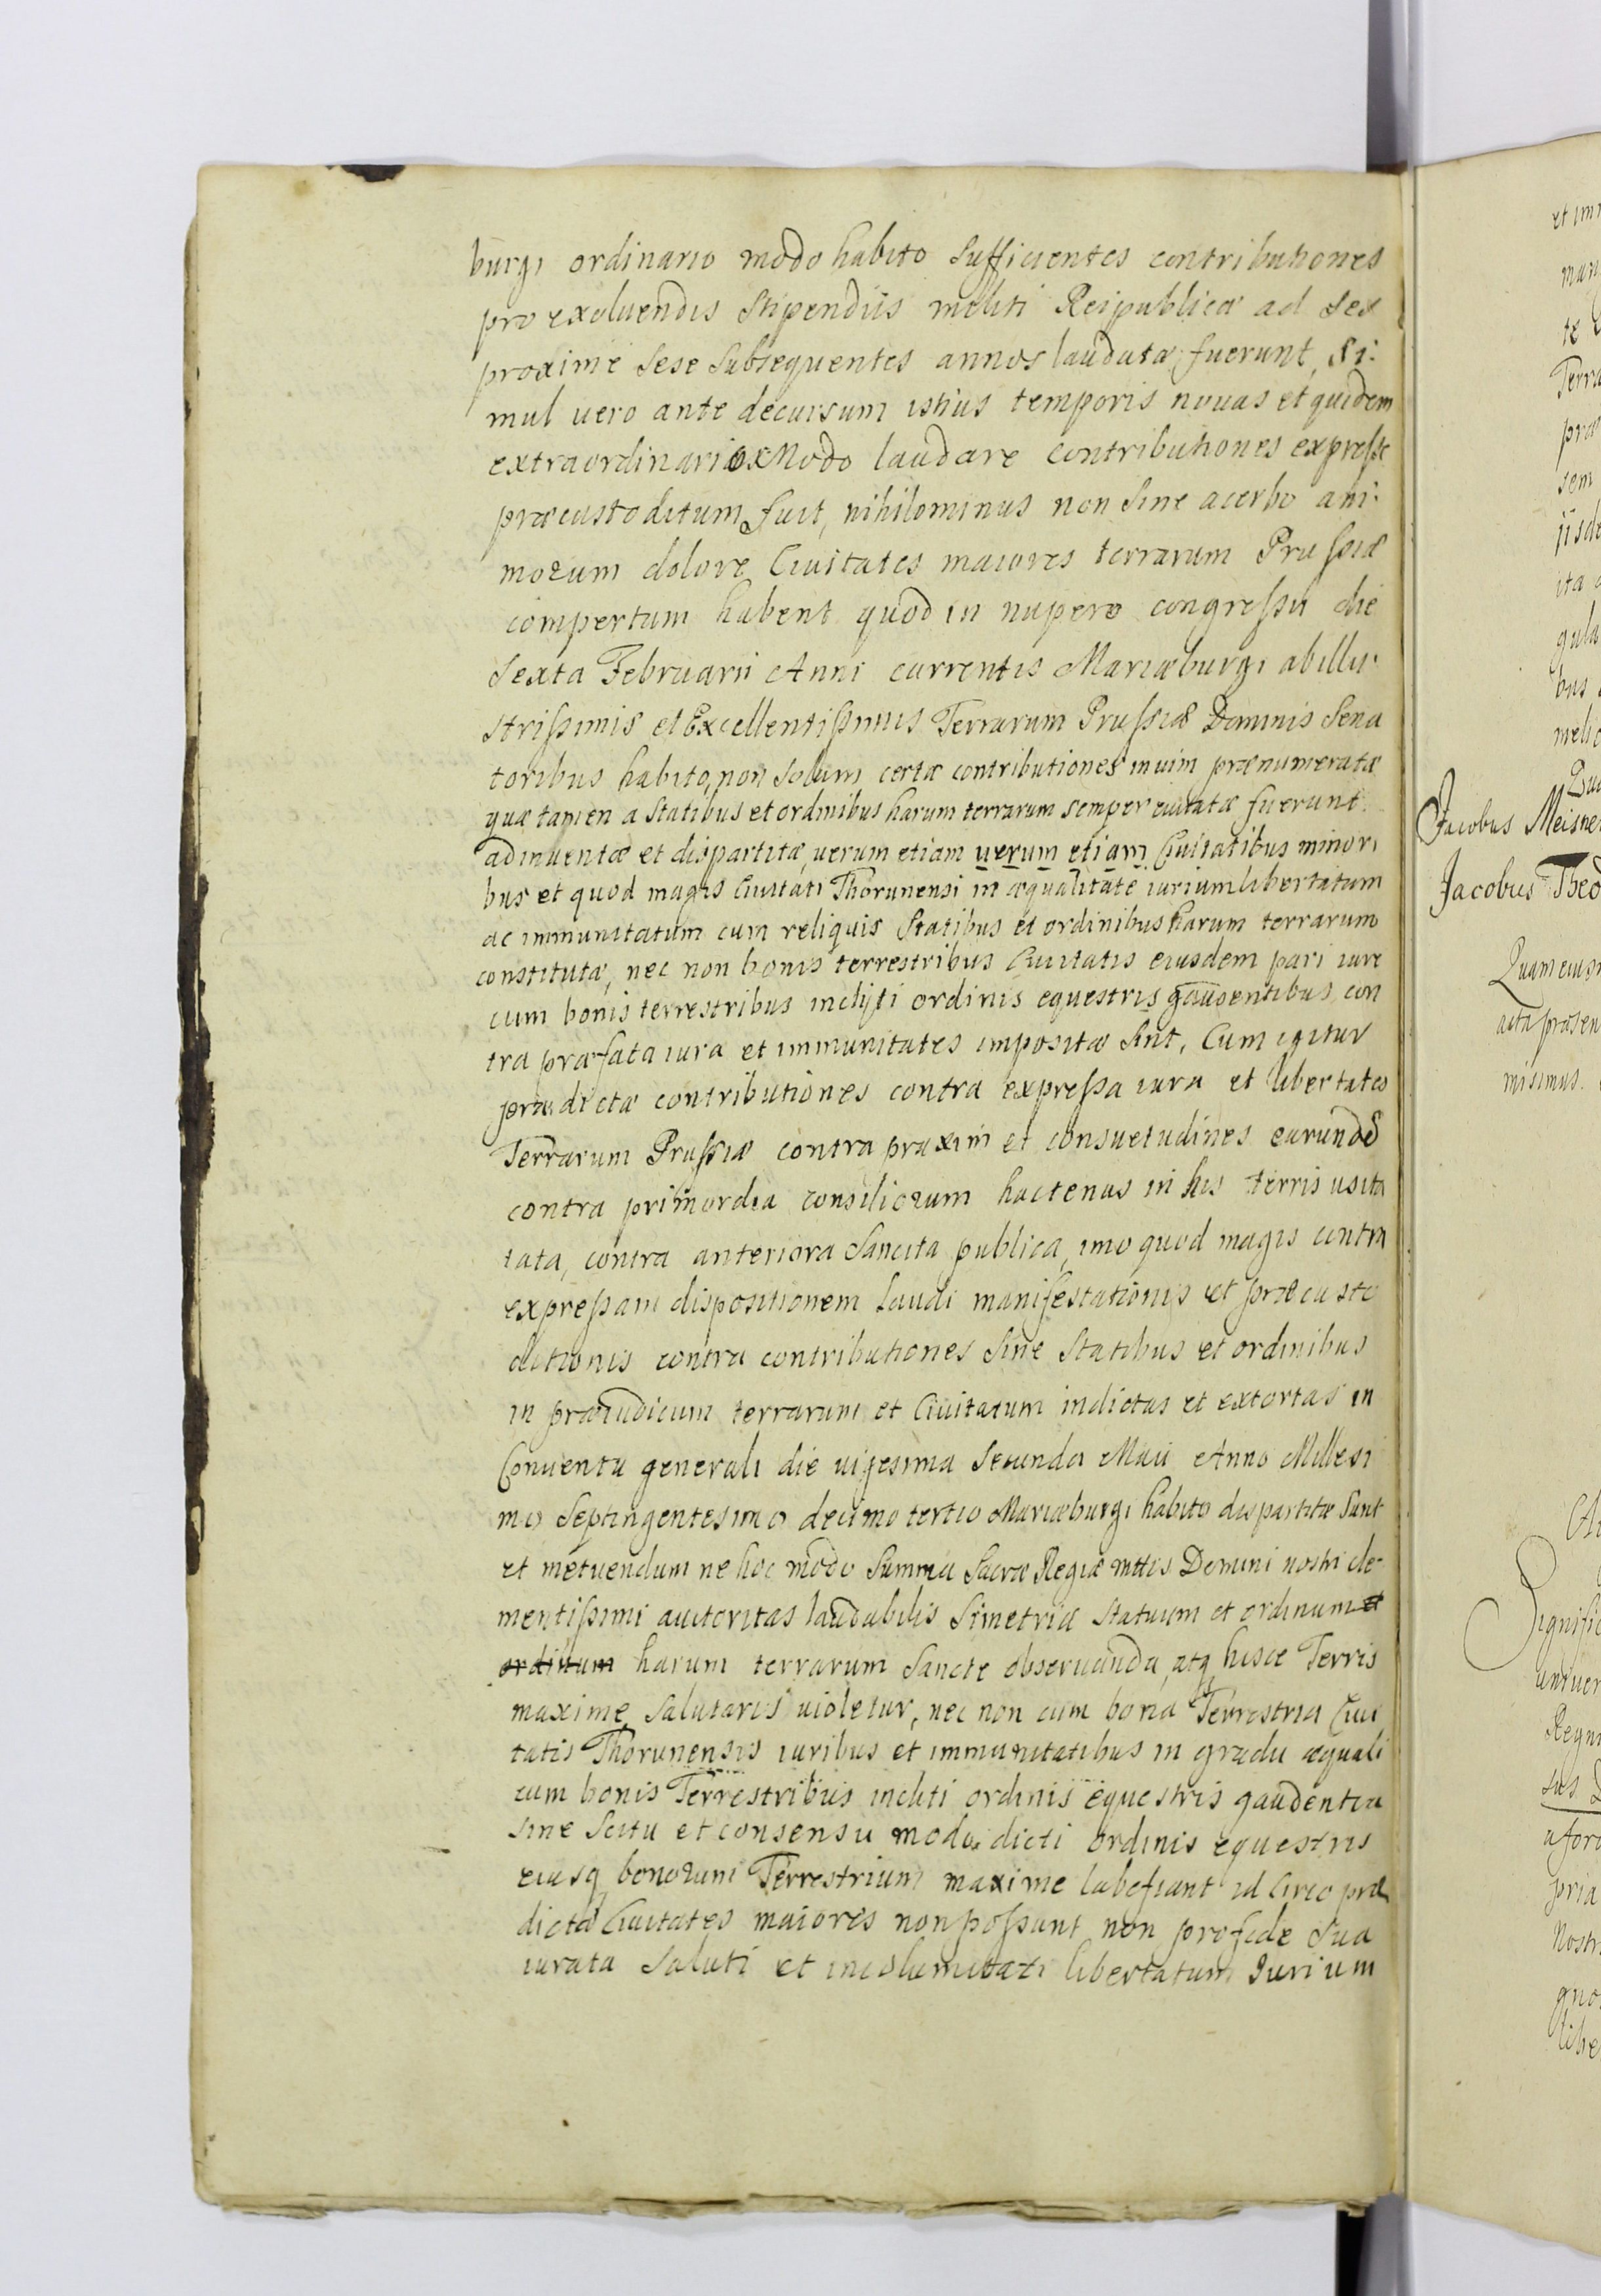 burgi ordinario modo habito Sufficientes contributiones
pro exoluendis Stipendiis militi Reipublicæ ad Sex
proxime Sese Subsequentes annos laudatæ fuerunt, Si:
mul vero ante decursum istius temporis nouas et quidem
extraordinario Modo laudare contributiones expresse
præcustoditum fuit, nihilominus non Sine acerbo ani:
morum dolore Ciuitates maiores terrarum Prussiæ
compertum habent quod in nupero congressu die
Sexta Februarii Anni currentis Mariæburgi ab illu:
strissimis et Excellentissimis Terrarum Prussiæ Dominis Sena
toribus habito, non Solum certæ contributiones in uim prænumeratæ
quæ tamen a Statibus et ordinibus harum terrarum semper euitatæ fuerunt
adinuentæ et dispartitæ, uerum etiam uerum etiam Ciuitatibus minori
bus et quod magis Ciuitati Thorunensi in æqualitate iurium libertatum
ac immunitatum cum reliquis Statibus et ordinibus harum terrarum
constitutæ, nec non bonis terrestribus Ciuitatis eiusdem pari iure
cum bonis terrestribus inclyti ordinis equestris gaudentibus con
tra præfata iura et immunitates impositæ Sint, Cum igitur
prædictæ contributiones contra expressa iura et libertates
Terrarum Prussiæ contra praxim et consuetudines earunde
contra primordia consiliorum hactenus in his terris usita
tata, contra anteriora Sancita publica, imo quod magis contra
expressam dispositionem Laudi manifestationis et præcusto
ditionis contra contributiones Sine Statibus et ordinibus
in præiudicium terrarum et Ciuitatum indictas et extortas in
Conuentu generali die uigesima Secunda Maii Anno Millesi
mo Septingentesimo decimo tertio Mariæburgi habito dispartitæ Sunt
et metuendum ne hoc modo Summa Sacræ Regiæ mttis Domini nostri cle-
mentissimi auctoritas laudabilis Simetria Statuum et ordinum et
ordinum harum terrarum Sancte obseruanda, atq hisce Terris
maxime Salutaris uioletur, nec non cum bona Terrestria Ciui
tatis Thorunensis iuribus et immunitatibus in gradu æquali
cum bonis Terrestribus incliti ordinis equestris gaudentia
Sine Scitu et consensu modo dicti ordinis equestris
eiusq bonorum Terrestrium maxime labefiant id Circo præ
dictæ Ciuitates maiores non possunt non pro fide Sua
iurata Saluti et incolumitati libertatum Iurium
et im
te
Terra
sem
ita
bus
Jacobus Meisne
Jacobus Theo
Quam eius
acta præsen
misimus.
Signific
uniuer
Regni
pria
Nostr
quo
libe